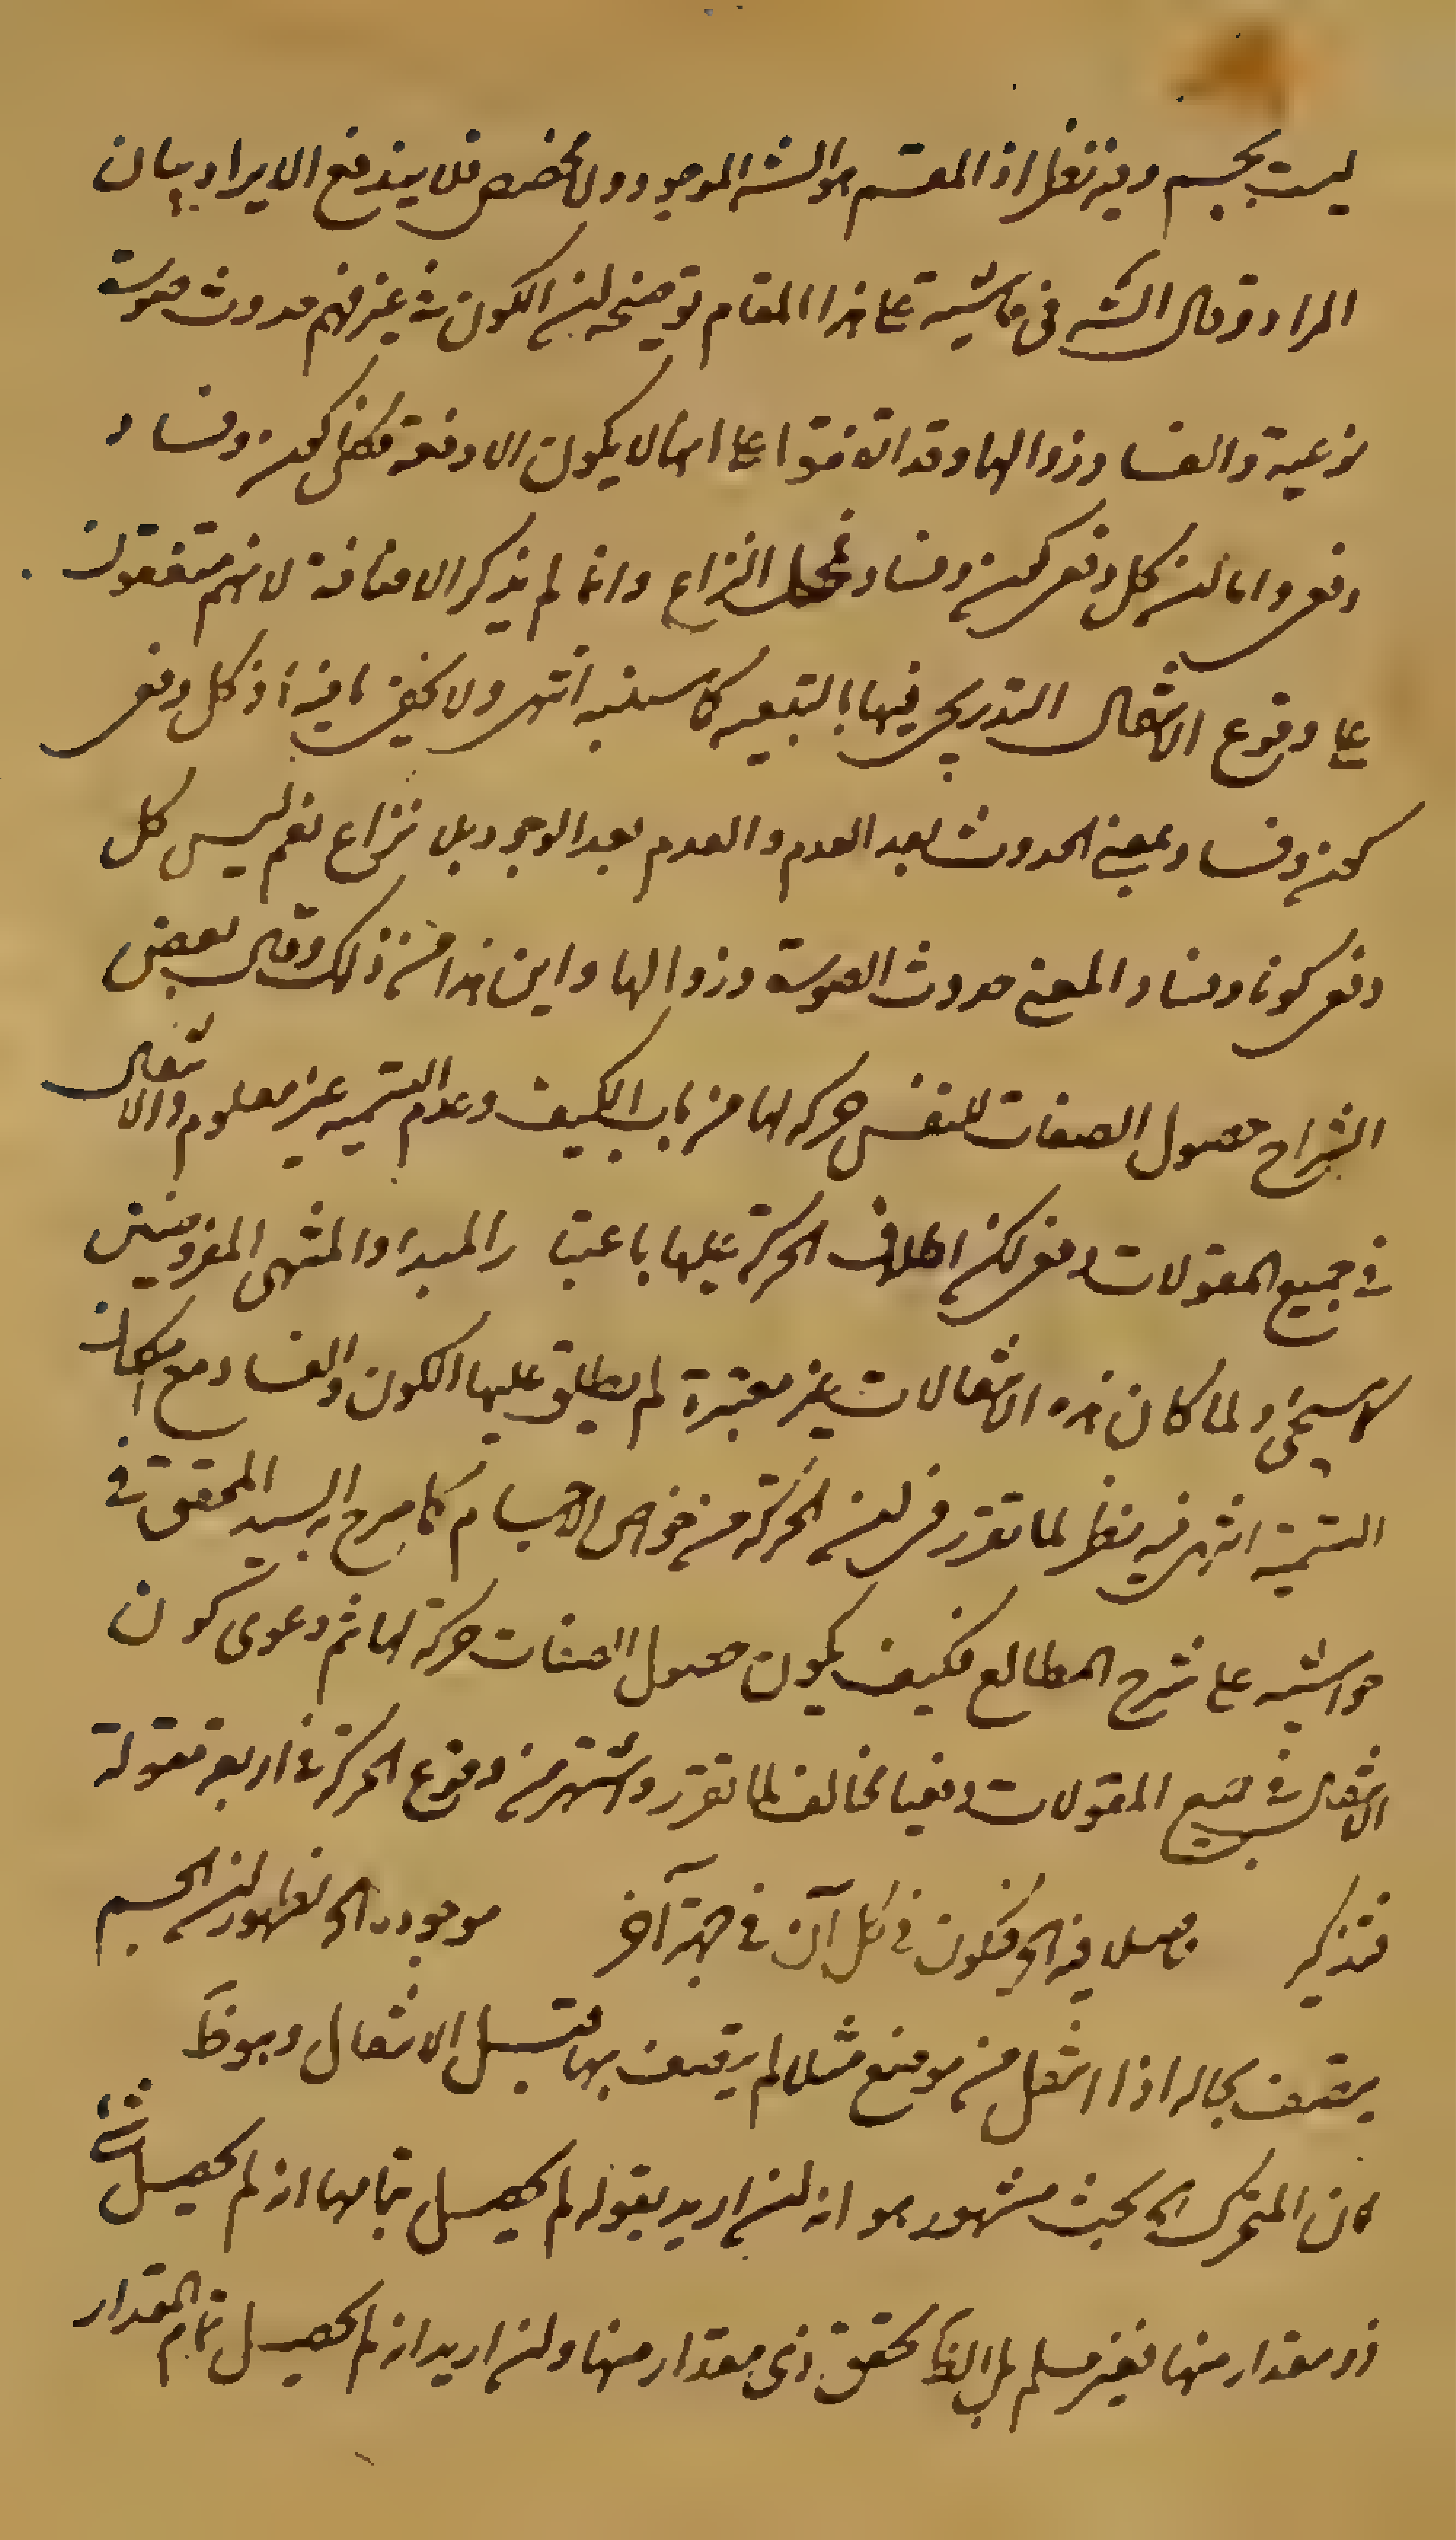 ليست بجسم وفيه نظر اذ المقسم هو الشئ الموجود ولا مخصص فلا يندفع الايراد ببيان
المراد وقال الشه في حاشيته على هذا المقام توضيحه ان الكون في عرفهم حدوث صورة
نوعية والفساد زوالها وقد اتفقوا على انها لا يكون الا دفعة فكل كون وفساد
دفعي واما ان كل دفعي كون وفساد فمحل النزاع وانما لم يذكر الاضافة لانهم متفقون
على وقوع الانتقال التدريجي فيها بالتبعية كما سننبه انتهى ولا يخفى ما فيه اذ كل دفعي
كون وفساد بمعنى الحدوث بعد العدم والعدم بعد الوجود بلا نزاع نعم ليس كل
دفعي كونا وفسادا لمعنى حدوث الصورة وزوالها واين هذا من ذلك وقال بعض
الشراح حصول الصفات للنفس حركة لها من باب الكيف وعدم التسمية غير معلوم والانتقال
في جميع المقولات دفعي لكن اطلاق الحركة عليها باعتبار المبدا والمنتهى المفروضين
كما سيجئ ولما كان هذه الانتقالات غير معتبرة لم يطلق عليها الكون والفساد مع امكان
التسمية انتهى فيه نظر لما تقرر من ان الحركة من خواص الاجسام كما صرح به السيد المحقق في
حواشيه على شرح المطالع فكيف يكون حصول الصفات حركة لها ثم دعوى كون
الانتقال في جميع المقولات دفعيا مخالف لما تقرر واشتهر من وقوع الحركة في اربع مقولة
فتذكر حاصلا فيه الخ فيكون في كل آن في حيز آخر موجودة الخ لظهور ان الجسم
يتصف بحالة اذا انتقل من موضع مثلا لم يتصف بها قبل الانتقال وهو ظ
كان المتحرك الخ بحث مشهور هو انه ان اريد بقوله لم يحصل بتمامها انه لم يحصل شئ
ذو مقدار منها فغير مسلم بل الظ تحقق ذي مقدار منها وان اريد انه لم يحصل تمام المقدار